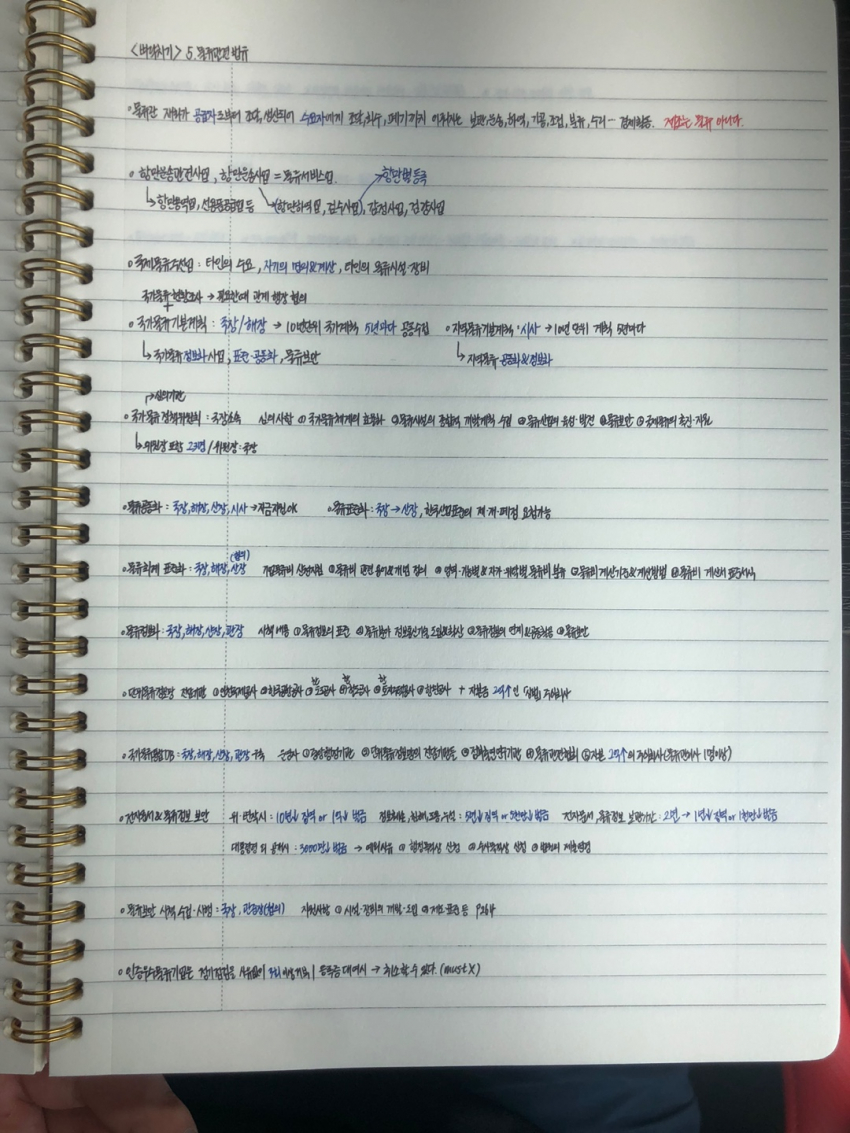 <벼락치기> 5.물류관련법규
◦물류란 재화가 공급자로부터 조달, 생산되어 수요자에게 조달, 회수, 폐기까지 이루어지는 보관, 운송, 하역, 가공, 조립, 분류, 수리… 경제활동. 제조는 물류 아니다.
◦항만운송관련사업, 항만운송사업 = 물류서비스업. →항만법 등록
↳항만용역업, 선용품공급업 등 (항만하역업, 검수사업), 감정사업, 검량사업
◦국제물류주선업 : 타인의 수요, 자기의 명의&계산, 타인의 물류시설·장비
국가물류현황조사 → 필요한 때 관계 행장 협의
◦국가물류기본계획 : 국장/해장 → 10년단위 국가계획 5년마다 공동수립 ◦지역물류기본계획 · 시사 → 10년 단위 계획 5년마다
↳국가물류정보화사업, 표준·공동화, 물류보안 ↳지역물류·공동화&정보화
↱심의기관
◦국가물류정책위원회 : 국장소속 심의사항 ① 국가물류체계의 효율화 ②물류시설의 종합적 개발계획 수립 ③물류산업의 육성·발전 ④물류보안 ⑤국제물류의 촉진·지원
↳위원장 포함 23명 / 위원장 : 국장
◦물류공동화 : 국장, 해장, 산장, 시사 → 자금지원OK ◦물류표준화 : 국장 → 산장, 한국산업표준의 제·개·폐정 요청가능
◦물류회계 표준화 : 국장, 해장, 산장 (협의) 기업물류비 산정지침 ①물류비 관련 용어&개념 정의 ② 영역·기능별&자가·위탁별 물류비 분류 ③물류비 계산기준&계산방법 ④물류비 계산서 표준서식
◦물류정보화 : 국장, 해장, 산장, 관장 시책 내용 ①물류정보의 표준 ②물류분야 정보통신기술 도입&확산 ③물류정보의 연계&공동활용 ④물류보안
◦단위물류정보망 전담기관 ①인천국제공사 ②한국공항공사 ③도로공사 ④철도공사 ⑤토지주택공사 ⑥항만공사 + 자본금 2억↑인 「상법」 주식회사
◦국가물류통합DB : 국장, 해장, 산장, 관장 구축 운영자 ①중앙행정기관 ②단위물류정보망의 전담기관 ③정부출연연구기관 ④물류관련협회 ⑤자본 2억↑의 주식회사 (물류관리사 1명이상)
◦전자문서&물류정보 보안 위·변작시 : 10년↓ 징역 or 1억↓ 벌금 정보훼손, 침해, 도용, 누설 : 5년↓ 징역 or 5천만↓ 벌금 전자문서, 물류정보 보관기간 : 2년 → 1년↓ 징역 or 1천만↓ 벌금
대통령령 외 공개시 : 3000만↓ 벌금 → 예외사유 ① 행정목적상 신청 ② 수사목적상 신청 ③ 법원의 제출명령
◦물류보안 시책 수립·시행 : 국장, 관중장(협의) 지원사항 ① 시설·장비의 개발·도입 ②제도·표준 등 P264
◦인증우수물류기업은 정기점검을 사유없이 3회 이상거부 / 등록증 대여시 → 취소할 수 있다. (must X)